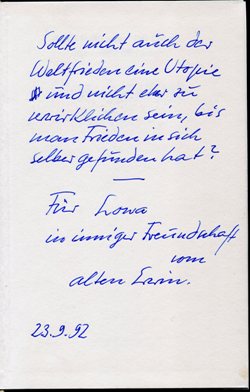 Sollte nicht auch der
Weltfrieden eine Utopie
und nicht eher zu
verwirklichen sein, bis
man Frieden in sich
selber gefunden hat?
—
Für Lowa
in inniger Freundschaft
vom
alten Erwin.
23.9.92